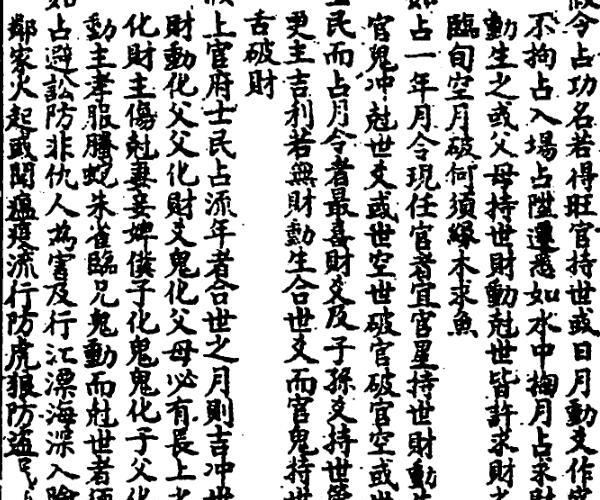 假令占功名若得旺官持世或日月動爻作官
不拘占入場占陞遷悉如水中掬月占求財
動生之或父母持世財動尅世皆許求財
臨旬空月破何須緣木求魚
如占一年月令現任官者宜官星持世財動生
官鬼冲尅世爻或世空世破官破官空或世
士民而占月令者最喜財爻及子孫爻持世
更主吉利若無財動生合世爻而官鬼持世
舌破財
上官府士民占流年者合世之月則吉冲世
財動化父父化財爻鬼化父母必有長上
化財主傷尅妻妾婢僕子化鬼鬼化子父化
動主孝服騰蛇朱雀臨兄鬼動而尅世者須
如占避訟防非仇人為害及行江漂海深入險
鄰家火起或聞瘟疫流行防虎狼防盜